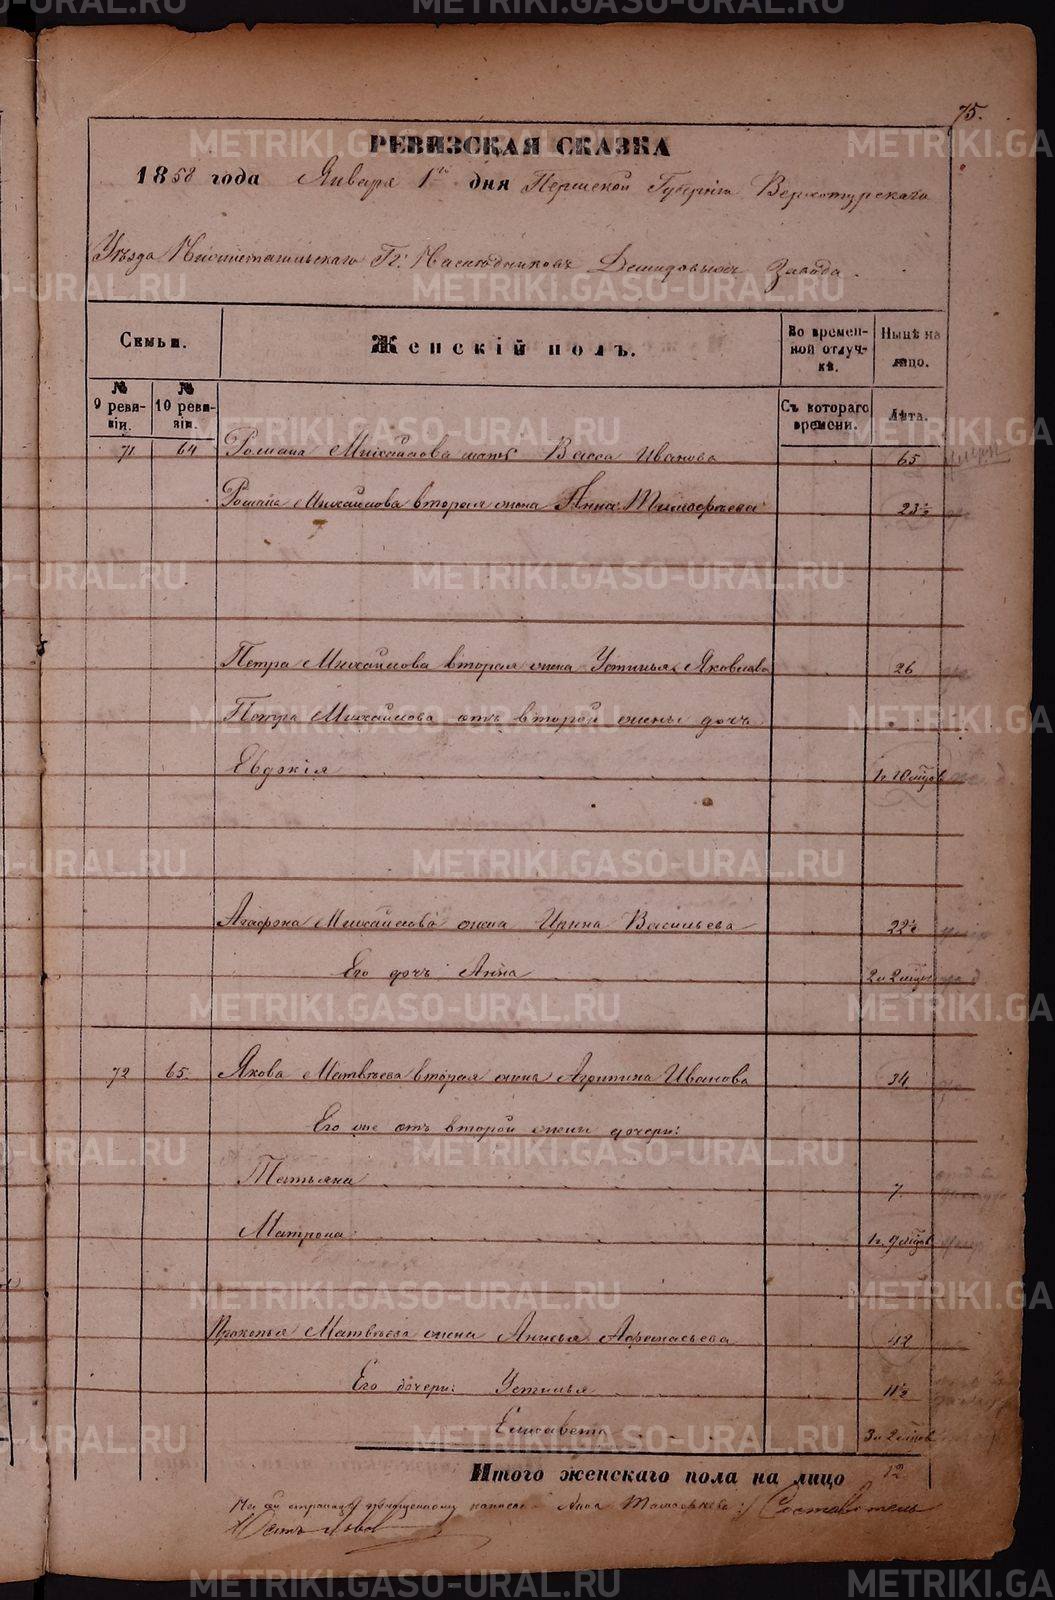 75.
РЕВИЗСКАЯ СКАЗКА
1858 года Января 1го дня Пермской Губерніи Верхотурскаго
Уѣзда Нижнетагильскаго Гг. Наслѣдниковъ Демидовыхъ Завода.
Семьи.
Женскій полъ.
Во времен-
ной отлуч-
кѣ.
Нынѣ на
лицо.
№
9 реви-
зіи.
№
10 реви-
зіи.
Съ котораго
времени.
Лѣта.
71 64 Романа Михайлова мать Васса Иванова 65
Романа Михайлова вторая жена Анна Тимофѣева 23½
Петра Михайлова вторая жена Устинья Яковлева 26
Петра Михайлова отъ второй жены дочь
Евдокія 1г. 10 мѣцов
Агафона Михайлова жена Ирина Васильева 22½
Его дочь Анна 2 и 2 мѣцов
72 65. Якова Матвѣева вторая жена Агрипина Иванова 34
Его же отъ второй жены дочери:
Татьяна 7.
Матрона 1г. 9 мѣцов
Прокопья Матвѣева жена Анисья Афонасьева 42
Его дочери: Устинья 11½
Елисавета 3 и 2 мѣцов
Итого женскаго пола на лицо 12
На сей страницѣ написано Анна Тимофѣева: Составитель